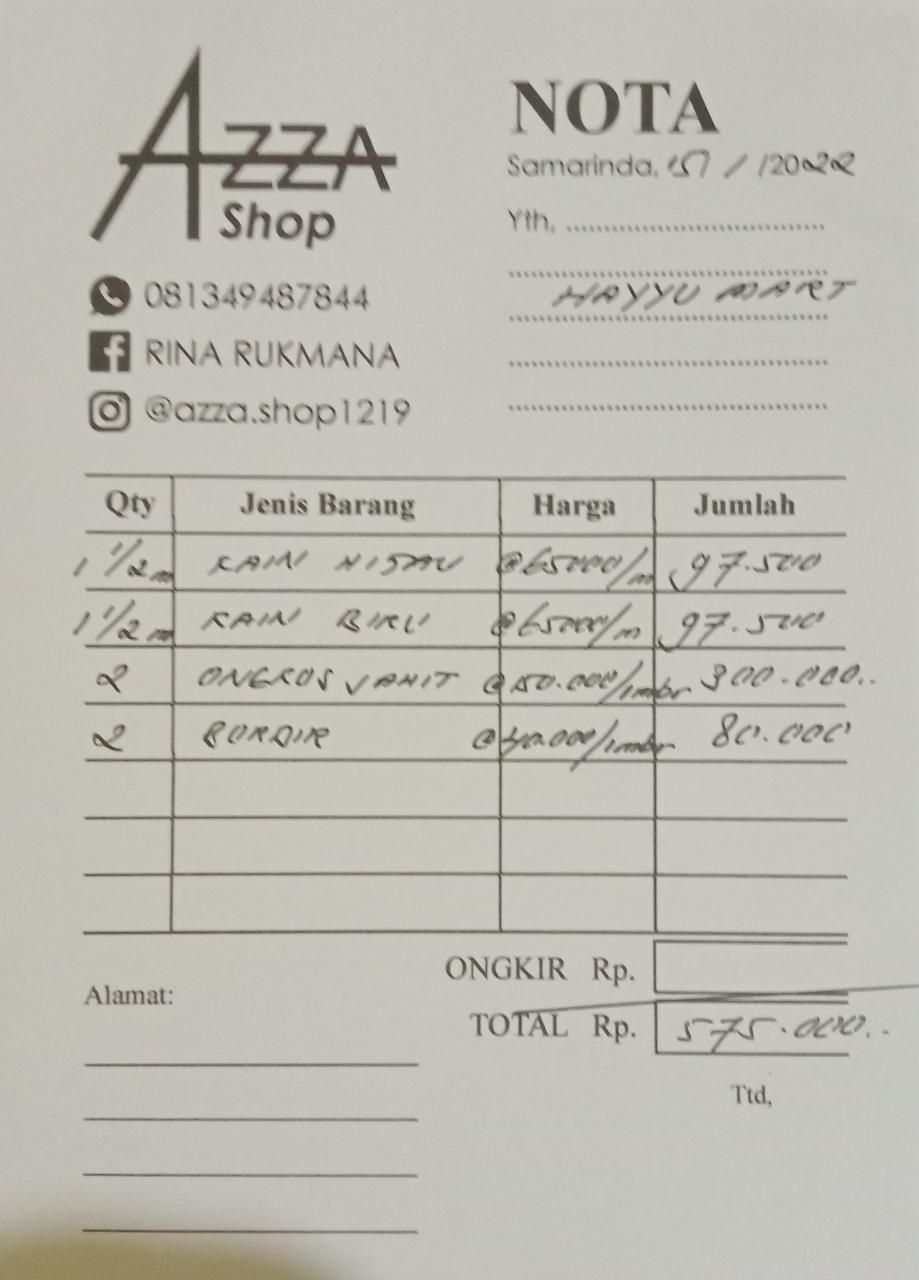 AZZA
Shop
081349487844
RINA RUKMANA
@azza.shop1219
NOTA
Samarinda, / /2022
Yth, ..............................
HAYYU MART
Qty Jenis Barang Harga Jumlah
1 1/2 m KAIN HIJAU @65000/m 97.500
1 1/2 m KAIN BIRU @65000/m 97.500
2 ONGKOS JAHIT @150.000/lmbr 300.000..
2 BORDIR @40.000/lmbr 80.000
ONGKIR Rp.
TOTAL Rp. 575.000..
Alamat:
Ttd,